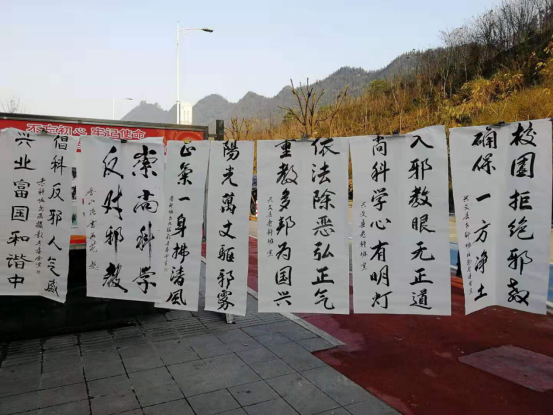 不忘初心 牢记使命
校园拒绝邪教
确保一方净土
入邪教眼无正道
尚科学心有明灯
兴文县老科协
依法除恶弘正气
重教多邦为国兴
兴文县老科协
陽光萬丈驱邪雾
正气一身拂清风
崇尚科学
反对邪教
倡科反邪人气盛
兴业富国和谐中